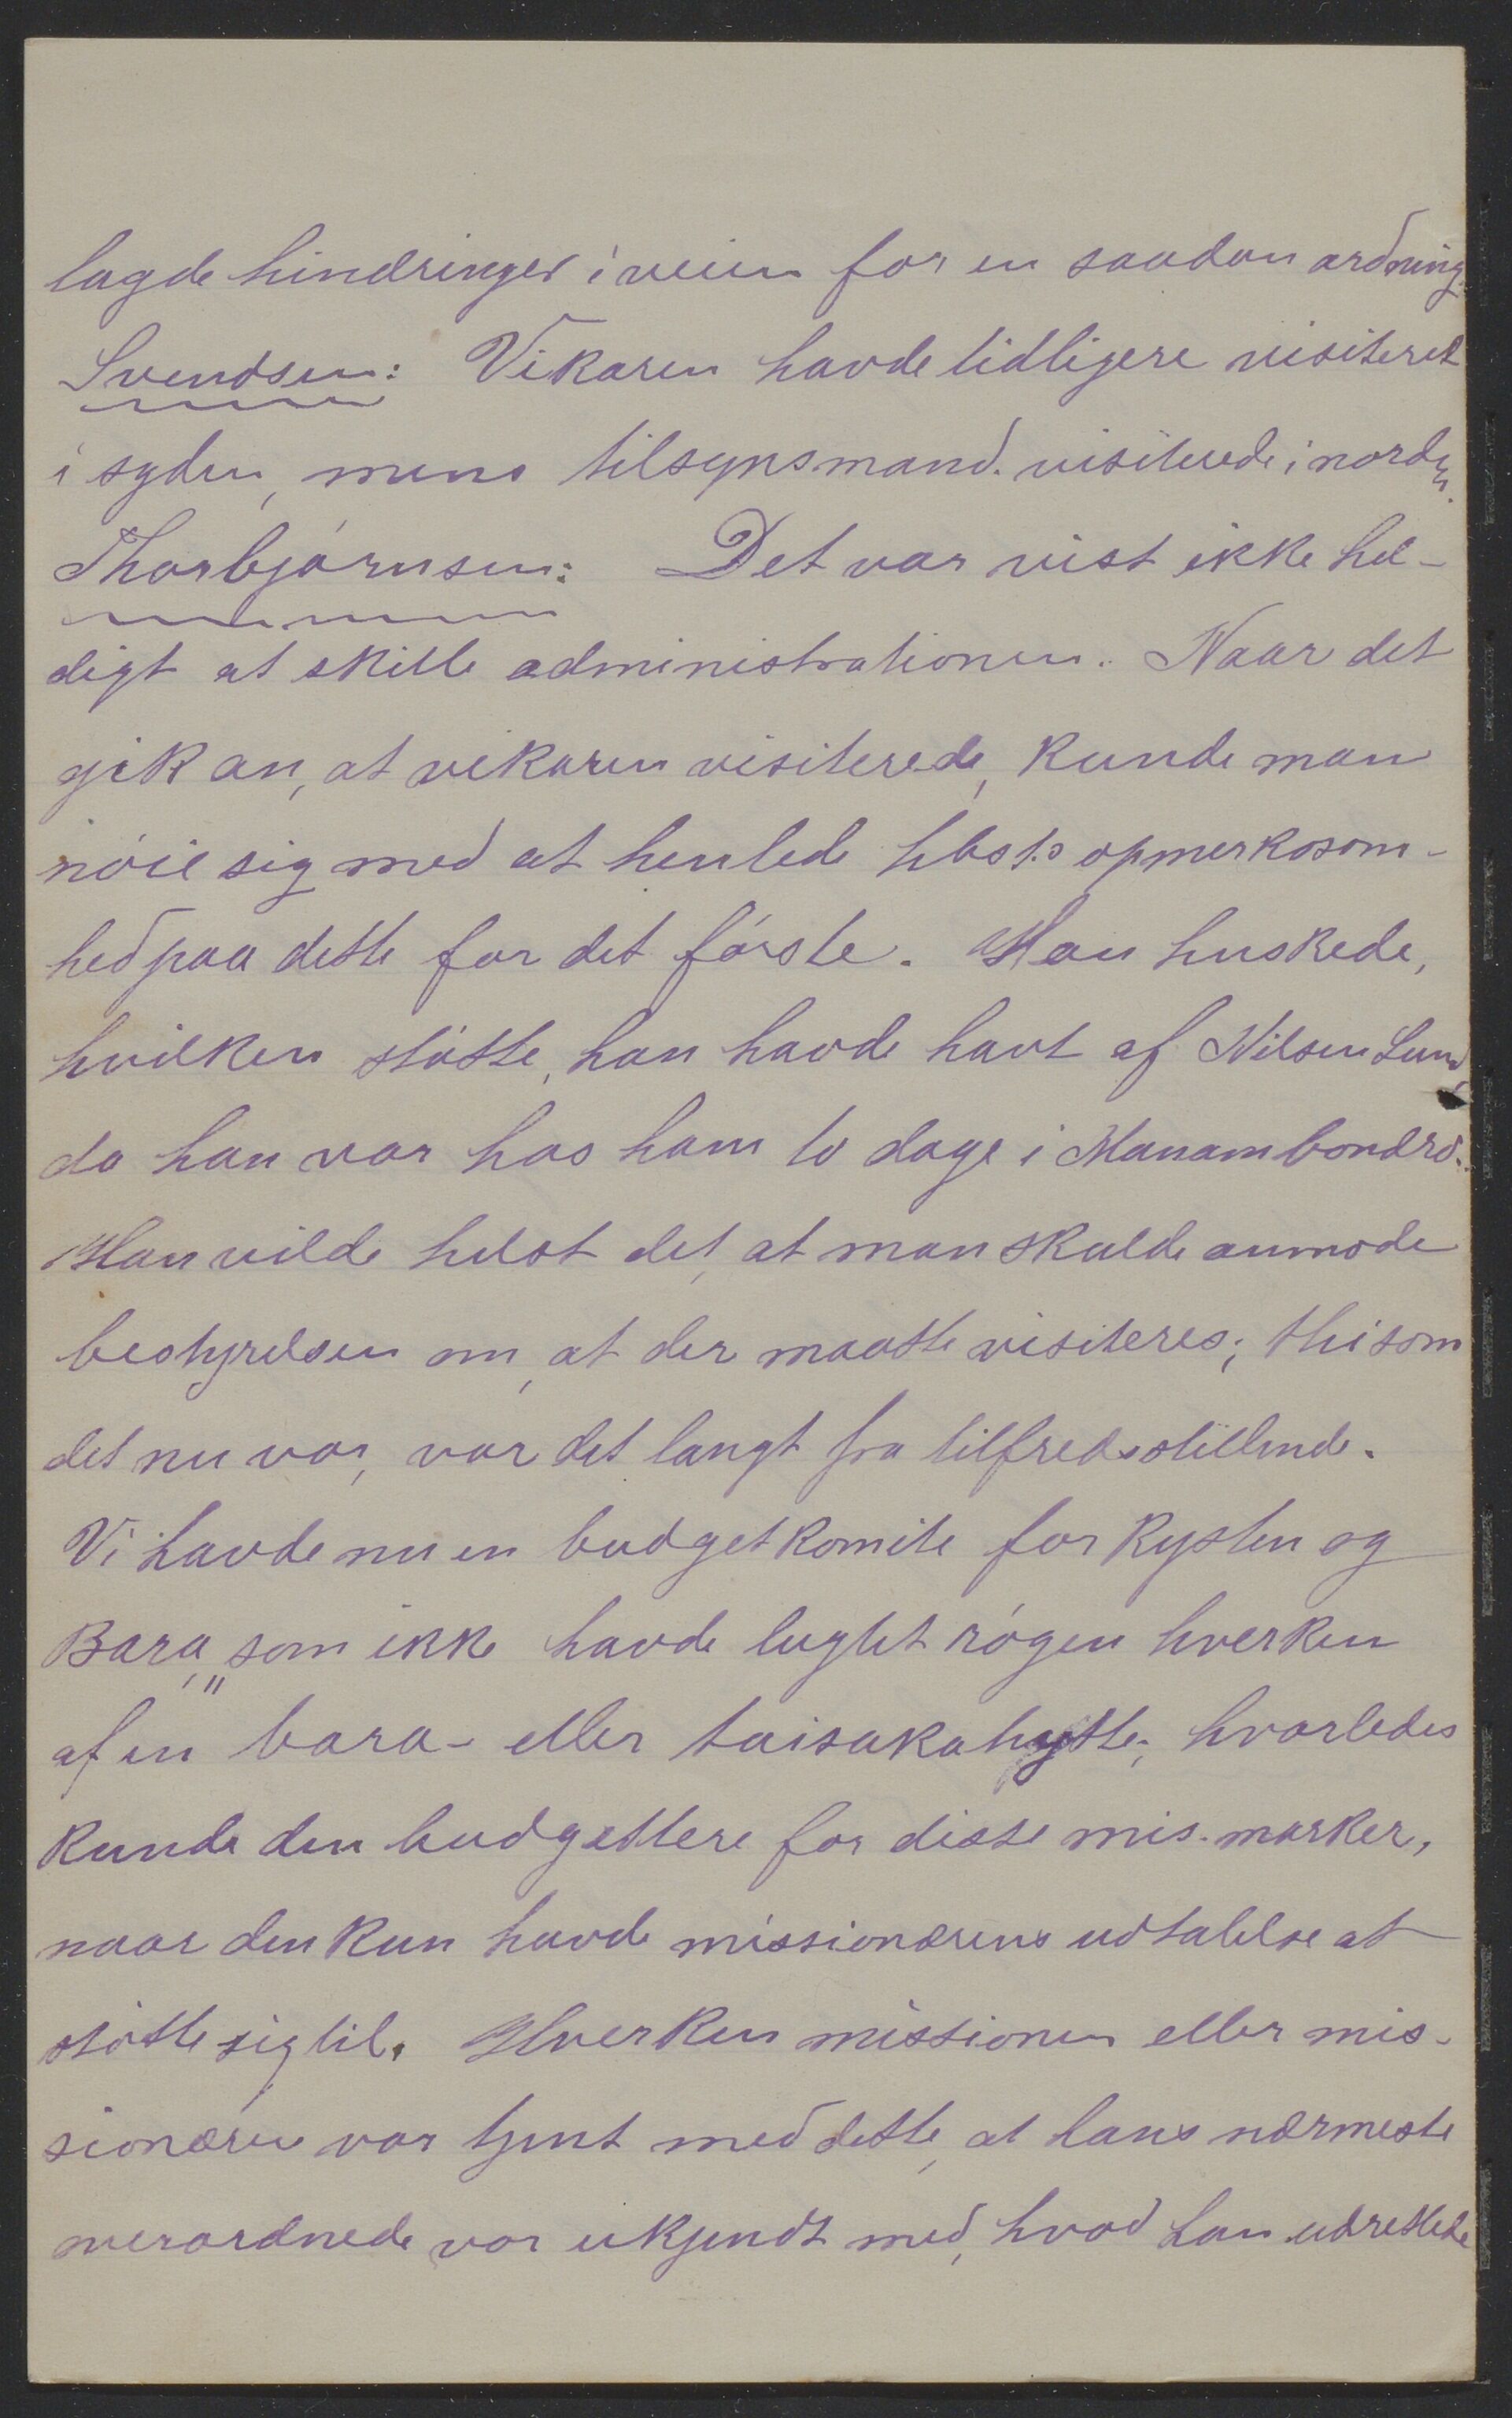 lagde hindringer i veien for en saadan ordning.
Svendsen: Vikaren havde tidligere visiteret
i syden, mens tilsynsmand. visiterede i norden.
Thorbjórnsen: Det var vist ikke hel-
digt at skille administrationen. Naar det
gik an, at vikaren visiterede, kunde man
nóie sig med at henlede hbst.s opmerksom-
hed paa dette for det fórste. Han huskede,
hvilken stótte, han havde havt af Nilsen Lund,
da han var hos ham to dage i Manambondró.
Han vilde helst det, at man skulde anmode
bestyrelsen om, at der maatte visiteres; thi som
det nu var, var det langt fra tilfredsstillende.
Vi havde nu en budgetkomite for kysten og
Bara, som ikke havde lugtet rógen hverken
af en bara- eller taisakahytte; hvorledes
kunde den budgettere for disse mis. marker,
naar den kun havde missionærens udtalelse at
stótte sig til. Hverken missionen eller mis-
sionæren var tjent med dette, at hans nærmeste
overordnede var ukjendt med, hvad han udrettede